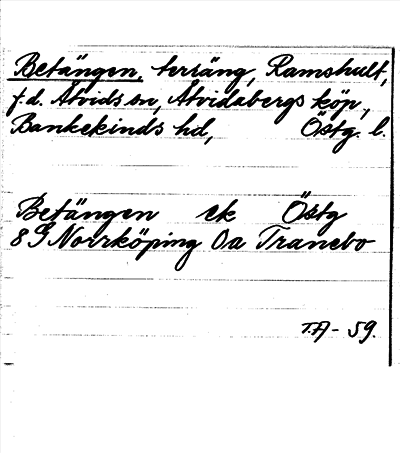 Betängen, tersäng, Ramshult,
f.d. Åtvids sn, Åtvidabergs köp,
Bankekinds hd, Östg. l.
Betängen ek Östg
8 G Norrköping Öa Tranebo
T.A - 59.